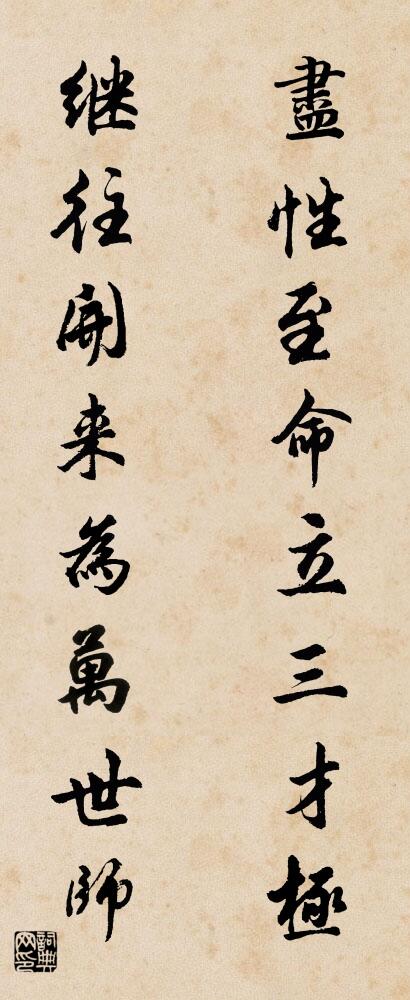 盡性至命立三才極
继往開来為萬世師
詞典网印